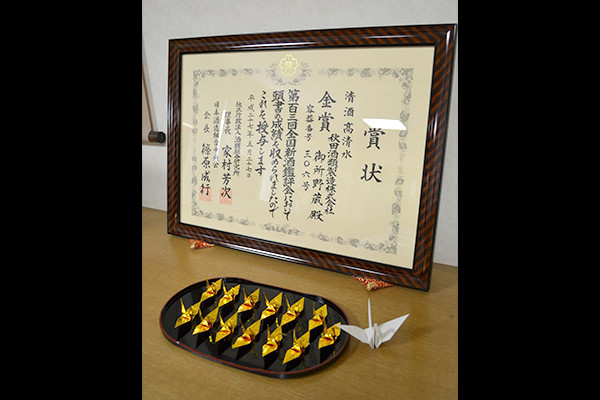 賞状
清酒 高清水
秋田酒類製造株式会社
御所野蔵 殿
金賞
容器番号 三〇六号
第百三回全国新酒鑑評会において
頭書の成績を収められましたので
これを授与します
平成二十七年五月二十七日
独立行政法人酒類総合研究所
理事長 家村芳次
日本酒造組合中央会
会長 篠原成行